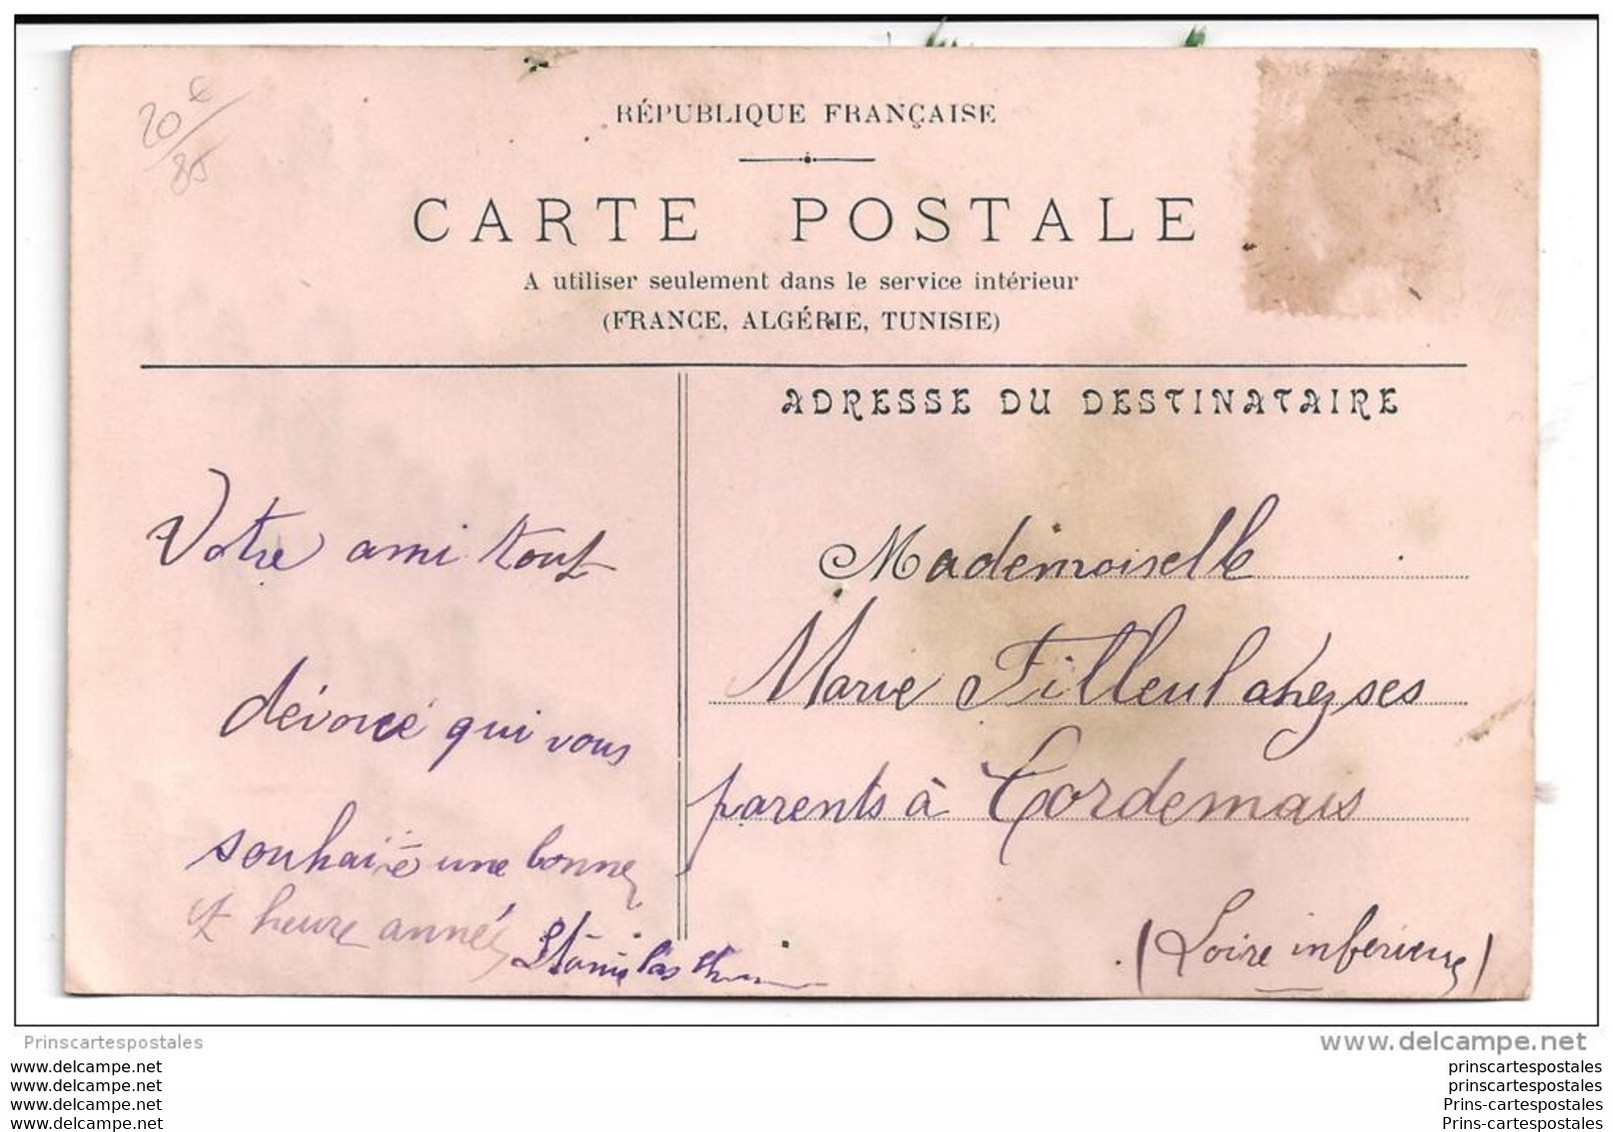 20€
85
RÉPUBLIQUE FRANÇAISE
CARTE POSTALE
A utiliser seulement dans le service intérieur
(FRANCE, ALGÉRIE, TUNISIE)
ADRESSE DU DESTINATAIRE
Votre ami tout
dévoué qui vous
souhaite une bonne
et heure année
Stanislas
Mademoiselle
Marie Filleul chez ses
parents à Cordemais
(Loire inferieure)
Prinscartespostales
www.delcampe.net
www.delcampe.net
www.delcampe.net
www.delcampe.net
www.delcampe.net
prinscartespostales
prinscartespostales
Prins-cartespostales
Prins-cartespostales